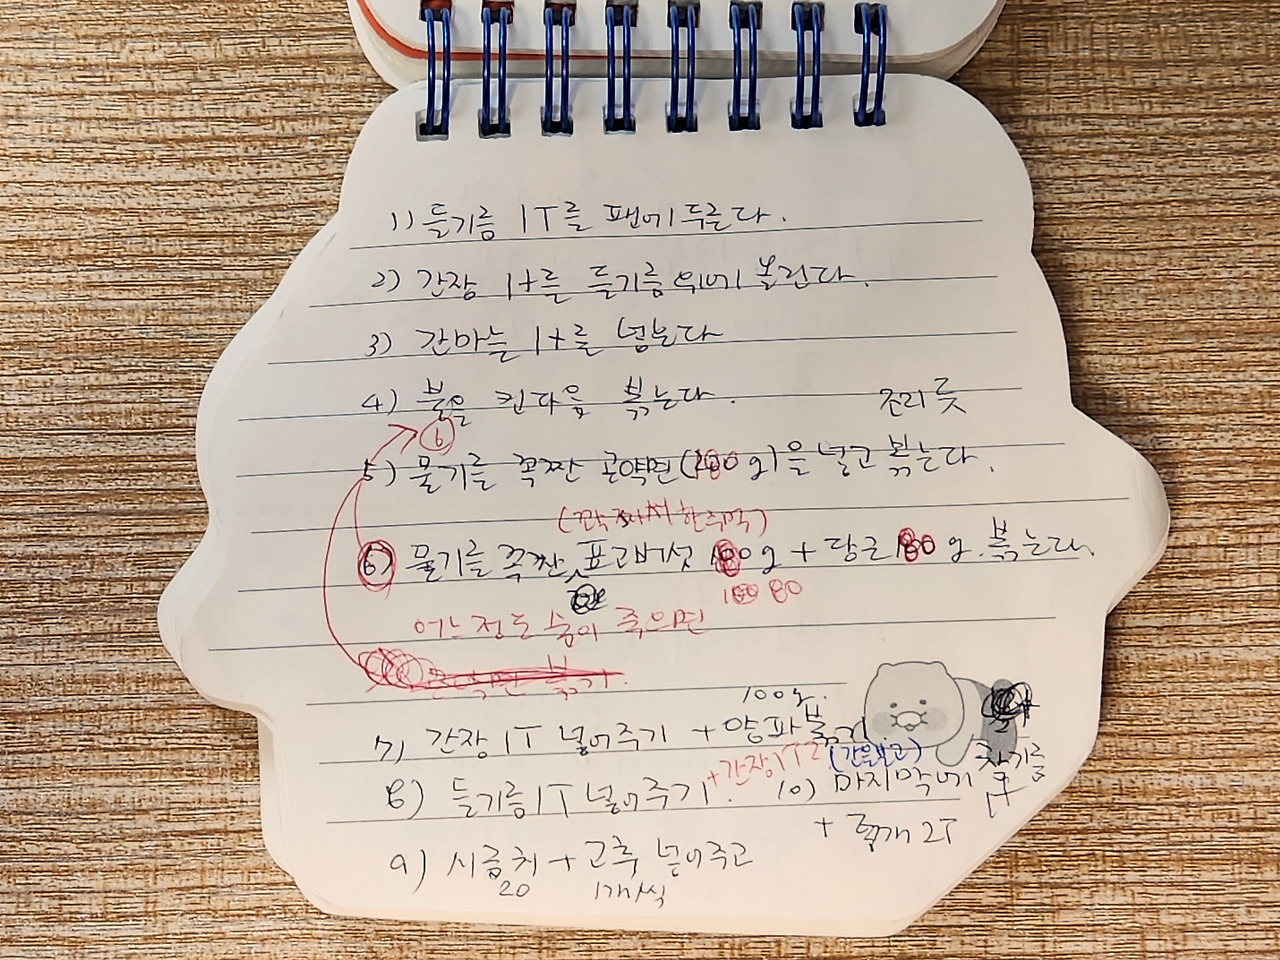 1) 들기름 1T를 팬에 두른다.
2) 간장 1t를 들기름 위에 올린다.
3) 간마늘 1t를 넣는다
4) 불을 킨다음 볶는다.
조리 룻
6
5) 물기를 꼭짠 곤약면(180g)을 넣고 볶는다.
(꽉 짜서 한주먹)
6) 물기를 꼭짠 표고버섯 100g + 당근 80g. 볶는다.
100 80
어느정도 숨이 죽으면
곤약면 볶기.
100g.
7) 간장 1T 넣어주기 + 양파 볶기
+간장 1T (간보고)
8) 들기름 1T 넣어주기.
10) 마지막에 참기름 1t
+ 깨 2T
9) 시금치 + 고추 넣어주고
20 1개씩